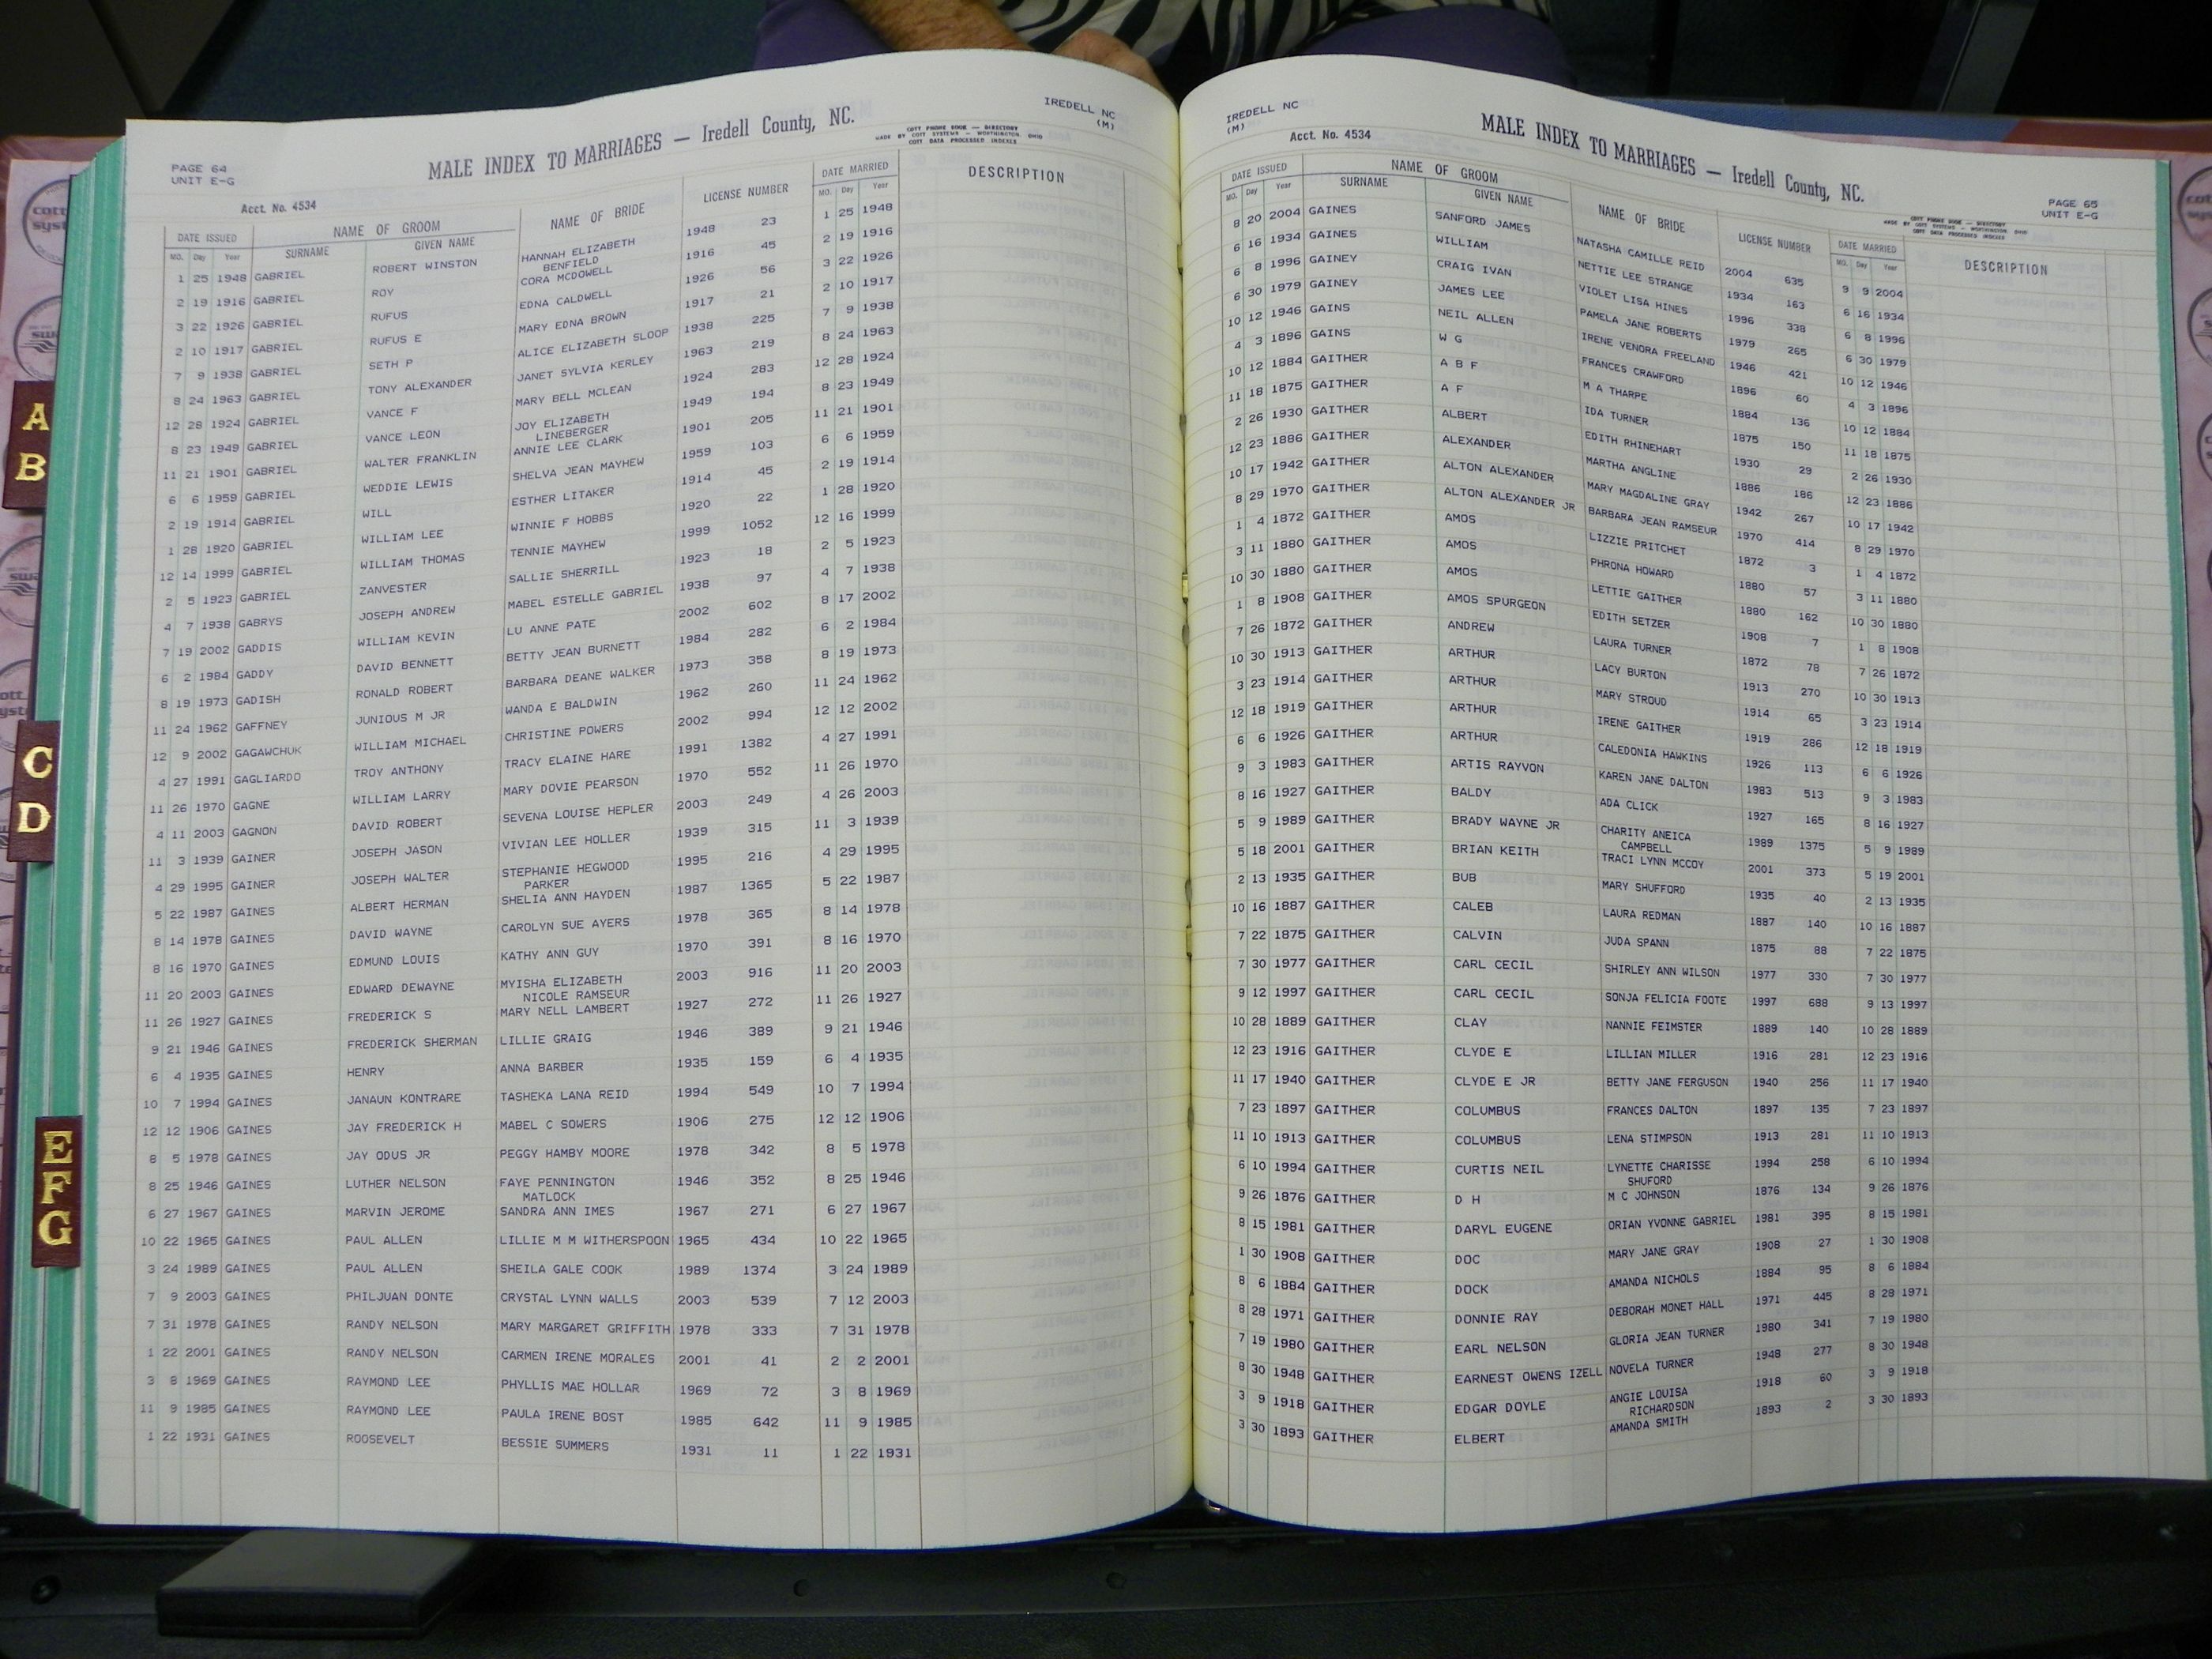 PAGE 64
UNIT E-G
Acct. No. 4534
MALE INDEX TO MARRIAGES — Iredell County, NC.
MADE BY COTT PHONE BOOK — DIRECTORY
COTT SYSTEMS — WORTHINGTON, OHIO
COTT DATA PROCESSED INDEXES
IREDELL NC
(M)
DATE ISSUED NAME OF GROOM NAME OF BRIDE LICENSE NUMBER DATE MARRIED DESCRIPTION
MO. Day Year SURNAME GIVEN NAME MO. Day Year
1 25 1948 GABRIEL ROBERT WINSTON HANNAH ELIZABETH 1948 23 1 25 1948
BENFIELD
2 19 1916 GABRIEL ROY CORA MCDOWELL 1916 45 2 19 1916
3 22 1926 GABRIEL RUFUS EDNA CALDWELL 1926 56 3 22 1926
2 10 1917 GABRIEL RUFUS E MARY EDNA BROWN 1917 21 2 10 1917
7 9 1938 GABRIEL SETH P ALICE ELIZABETH SLOOP 1938 225 7 9 1938
8 24 1963 GABRIEL TONY ALEXANDER JANET SYLVIA KERLEY 1963 219 8 24 1963
12 28 1924 GABRIEL VANCE F MARY BELL MCLEAN 1924 283 12 28 1924
8 23 1949 GABRIEL VANCE LEON JOY ELIZABETH 1949 194 8 23 1949
LINEBERGER
11 21 1901 GABRIEL WALTER FRANKLIN ANNIE LEE CLARK 1901 205 11 21 1901
6 6 1959 GABRIEL WEDDIE LEWIS SHELVA JEAN MAYHEW 1959 103 6 6 1959
2 19 1914 GABRIEL WILL ESTHER LITAKER 1914 45 2 19 1914
1 28 1920 GABRIEL WILLIAM LEE WINNIE F HOBBS 1920 22 1 28 1920
12 14 1999 GABRIEL WILLIAM THOMAS TENNIE MAYHEW 1999 1052 12 16 1999
2 5 1923 GABRIEL ZANVESTER SALLIE SHERRILL 1923 18 2 5 1923
4 7 1938 GABRYS JOSEPH ANDREW MABEL ESTELLE GABRIEL 1938 97 4 7 1938
7 19 2002 GADDIS WILLIAM KEVIN LU ANNE PATE 2002 602 8 17 2002
6 2 1984 GADDY DAVID BENNETT BETTY JEAN BURNETT 1984 282 6 2 1984
8 19 1973 GADISH RONALD ROBERT BARBARA DEANE WALKER 1973 358 8 19 1973
11 24 1962 GAFFNEY JUNIOUS M JR WANDA E BALDWIN 1962 260 11 24 1962
12 9 2002 GAGAWCHUK WILLIAM MICHAEL CHRISTINE POWERS 2002 994 12 12 2002
4 27 1991 GAGLIARDO TROY ANTHONY TRACY ELAINE HARE 1991 1382 4 27 1991
11 26 1970 GAGNE WILLIAM LARRY MARY DOVIE PEARSON 1970 552 11 26 1970
4 11 2003 GAGNON DAVID ROBERT SEVENA LOUISE HEPLER 2003 249 4 26 2003
11 3 1939 GAINER JOSEPH JASON VIVIAN LEE HOLLER 1939 315 11 3 1939
4 29 1995 GAINER JOSEPH WALTER STEPHANIE HEGWOOD 1995 216 4 29 1995
PARKER
5 22 1987 GAINES ALBERT HERMAN SHELIA ANN HAYDEN 1987 1365 5 22 1987
8 14 1978 GAINES DAVID WAYNE CAROLYN SUE AYERS 1978 365 8 14 1978
8 16 1970 GAINES EDMUND LOUIS KATHY ANN GUY 1970 391 8 16 1970
11 20 2003 GAINES EDWARD DEWAYNE MYISHA ELIZABETH 2003 916 11 20 2003
NICOLE RAMSEUR
11 26 1927 GAINES FREDERICK S MARY NELL LAMBERT 1927 272 11 26 1927
9 21 1946 GAINES FREDERICK SHERMAN LILLIE GRAIG 1946 389 9 21 1946
6 4 1935 GAINES HENRY ANNA BARBER 1935 159 6 4 1935
10 7 1994 GAINES JANAUN KONTRARE TASHEKA LANA REID 1994 549 10 7 1994
12 12 1906 GAINES JAY FREDERICK H MABEL C SOWERS 1906 275 12 12 1906
8 5 1978 GAINES JAY ODUS JR PEGGY HAMBY MOORE 1978 342 8 5 1978
8 25 1946 GAINES LUTHER NELSON FAYE PENNINGTON 1946 352 8 25 1946
MATLOCK
6 27 1967 GAINES MARVIN JEROME SANDRA ANN IMES 1967 271 6 27 1967
10 22 1965 GAINES PAUL ALLEN LILLIE M M WITHERSPOON 1965 434 10 22 1965
3 24 1989 GAINES PAUL ALLEN SHEILA GALE COOK 1989 1374 3 24 1989
7 9 2003 GAINES PHILJUAN DONTE CRYSTAL LYNN WALLS 2003 539 7 12 2003
7 31 1978 GAINES RANDY NELSON MARY MARGARET GRIFFITH 1978 333 7 31 1978
1 22 2001 GAINES RANDY NELSON CARMEN IRENE MORALES 2001 41 2 2 2001
3 8 1969 GAINES RAYMOND LEE PHYLLIS MAE HOLLAR 1969 72 3 8 1969
11 9 1985 GAINES RAYMOND LEE PAULA IRENE BOST 1985 642 11 9 1985
1 22 1931 GAINES ROOSEVELT BESSIE SUMMERS 1931 11 1 22 1931
A
B
C
D
E
F
G
IREDELL NC
(M)
Acct. No. 4534
MALE INDEX TO MARRIAGES — Iredell County, NC.
MADE BY COTT PHONE BOOK — DIRECTORY
COTT SYSTEMS — WORTHINGTON, OHIO
COTT DATA PROCESSED INDEXES
PAGE 65
UNIT E-G
DATE ISSUED NAME OF GROOM NAME OF BRIDE LICENSE NUMBER DATE MARRIED DESCRIPTION
MO. Day Year SURNAME GIVEN NAME MO. Day Year
8 20 2004 GAINES SANFORD JAMES NATASHA CAMILLE REID 2004 635 9 9 2004
6 16 1934 GAINES WILLIAM NETTIE LEE STRANGE 1934 163 6 16 1934
6 8 1996 GAINEY CRAIG IVAN VIOLET LISA HINES 1996 338 6 8 1996
6 30 1979 GAINEY JAMES LEE PAMELA JANE ROBERTS 1979 265 6 30 1979
10 12 1946 GAINS NEIL ALLEN IRENE VENORA FREELAND 1946 421 10 12 1946
4 3 1896 GAINS W G FRANCES CRAWFORD 1896 60 4 3 1896
10 12 1884 GAITHER A B F M A THARPE 1884 136 10 12 1884
11 18 1875 GAITHER A F IDA TURNER 1875 150 11 18 1875
2 26 1930 GAITHER ALBERT EDITH RHINEHART 1930 29 2 26 1930
12 23 1886 GAITHER ALEXANDER MARTHA ANGLINE 1886 186 12 23 1886
10 17 1942 GAITHER ALTON ALEXANDER MARY MAGDALINE GRAY 1942 267 10 17 1942
8 29 1970 GAITHER ALTON ALEXANDER JR BARBARA JEAN RAMSEUR 1970 414 8 29 1970
1 4 1872 GAITHER AMOS LIZZIE PRITCHET 1872 3 1 4 1872
3 11 1880 GAITHER AMOS PHRONA HOWARD 1880 57 3 11 1880
10 30 1880 GAITHER AMOS LETTIE GAITHER 1880 162 10 30 1880
1 8 1908 GAITHER AMOS SPURGEON EDITH SETZER 1908 7 1 8 1908
7 26 1872 GAITHER ANDREW LAURA TURNER 1872 78 7 26 1872
10 30 1913 GAITHER ARTHUR LACY BURTON 1913 270 10 30 1913
3 23 1914 GAITHER ARTHUR MARY STROUD 1914 65 3 23 1914
12 18 1919 GAITHER ARTHUR IRENE GAITHER 1919 286 12 18 1919
6 6 1926 GAITHER ARTHUR CALEDONIA HAWKINS 1926 113 6 6 1926
9 3 1983 GAITHER ARTIS RAYVON KAREN JANE DALTON 1983 513 9 3 1983
8 16 1927 GAITHER BALDY ADA CLICK 1927 165 8 16 1927
5 9 1989 GAITHER BRADY WAYNE JR CHARITY ANEICA 1989 1375 5 9 1989
CAMPBELL
5 18 2001 GAITHER BRIAN KEITH TRACI LYNN MCCOY 2001 373 5 19 2001
2 13 1935 GAITHER BUB MARY SHUFFORD 1935 40 2 13 1935
10 16 1887 GAITHER CALEB LAURA REDMAN 1887 140 10 16 1887
7 22 1875 GAITHER CALVIN JUDA SPANN 1875 88 7 22 1875
7 30 1977 GAITHER CARL CECIL SHIRLEY ANN WILSON 1977 330 7 30 1977
9 12 1997 GAITHER CARL CECIL SONJA FELICIA FOOTE 1997 688 9 13 1997
10 28 1889 GAITHER CLAY NANNIE FEIMSTER 1889 140 10 28 1889
12 23 1916 GAITHER CLYDE E LILLIAN MILLER 1916 281 12 23 1916
11 17 1940 GAITHER CLYDE E JR BETTY JANE FERGUSON 1940 256 11 17 1940
7 23 1897 GAITHER COLUMBUS FRANCES DALTON 1897 135 7 23 1897
11 10 1913 GAITHER COLUMBUS LENA STIMPSON 1913 281 11 10 1913
6 10 1994 GAITHER CURTIS NEIL LYNETTE CHARISSE 1994 258 6 10 1994
SHUFORD
9 26 1876 GAITHER D H M C JOHNSON 1876 134 9 26 1876
8 15 1981 GAITHER DARYL EUGENE ORIAN YVONNE GABRIEL 1981 395 8 15 1981
1 30 1908 GAITHER DOC MARY JANE GRAY 1908 27 1 30 1908
8 6 1884 GAITHER DOCK AMANDA NICHOLS 1884 95 8 6 1884
8 28 1971 GAITHER DONNIE RAY DEBORAH MONET HALL 1971 445 8 28 1971
7 19 1980 GAITHER EARL NELSON GLORIA JEAN TURNER 1980 341 7 19 1980
8 30 1948 GAITHER EARNEST OWENS IZELL NOVELA TURNER 1948 277 8 30 1948
3 9 1918 GAITHER EDGAR DOYLE ANGIE LOUISA 1918 60 3 9 1918
RICHARDSON
3 30 1893 GAITHER ELBERT AMANDA SMITH 1893 2 3 30 1893